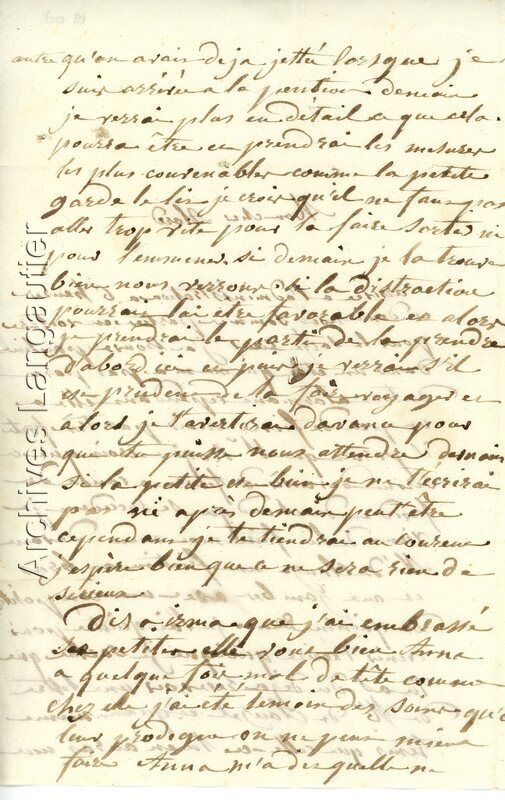 autre qu'on avais deja jettée lorsque je
suis arrivée a la pention demain
je verrai plus en détail ce que cela
pourra être en prendrai les mesures
les plus convenables comme la petite
garde le lit je crois qu'il ne faut pas
aller trop vite pour la faire sortir ni
pour l'emmener si demain je la trouve
bien nous verrons si la distraction
pourrai lui etre favorable et alors
je prendrai le parti de la prendre
d'abord ici en puis je verrai s'il
est prudent de la faire voyager et
alors je t'avertirai d'avance pour
que tu puisse nous attendre demain
si la petite est bien je ne t'écrirai
pas ni après demain peut être
cependans je te tiendrai au courent
j'espère bien que ce ne sera rien de
serieux
Dis a irma que j'ai embrassé
ses petites elle vous bien Anna
a quelque fois mal de tête comme
chez elle j'ai été temoin des soins qu'on
leur prodigue on ne peux mieux
faire Anna m'a dis quelle ne
Archives Langautier